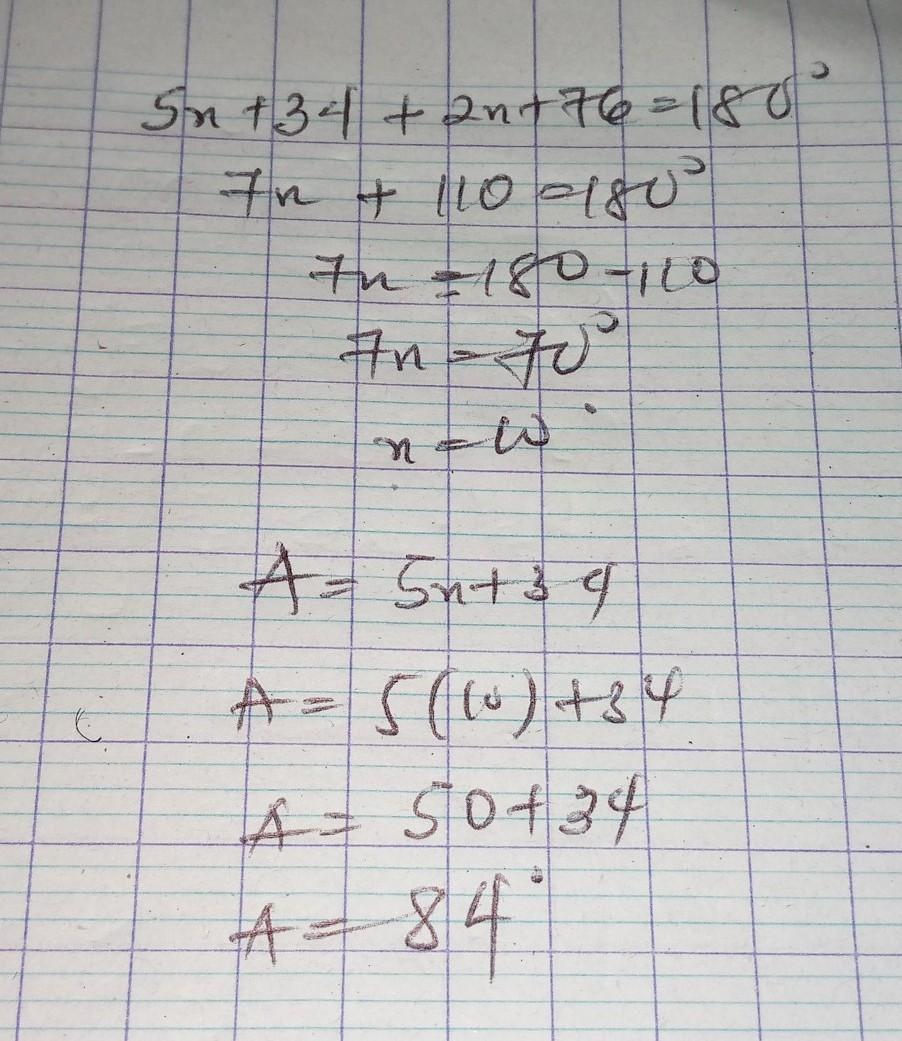 5n + 34 + 2n + 76 = 180°
7n + 110 = 180°
7n = 180 - 110
7n = 70°
n = 10°
A = 5n + 34
A = 5(10) + 34
A = 50 + 34
A = 84°